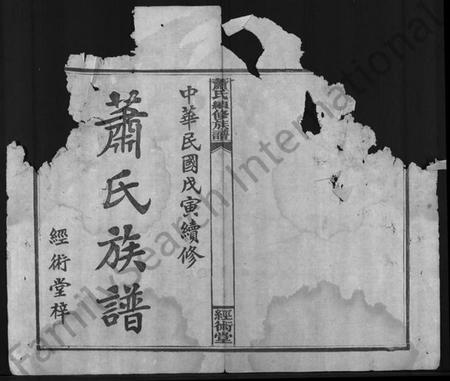 蕭氏續修族譜
經術堂
中華民國戊寅續修
蕭氏族譜
經術堂梓
FamilySearch International